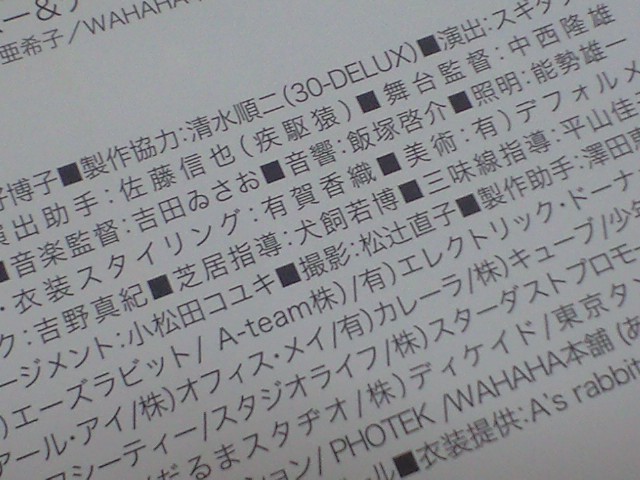 ー&
亜希子／WAHAHA
博子■製作協力:清水順二(30-DELUX)■演出:スギタ
演出助手:佐藤信也(疾駆猿)■舞台監督:中西隆雄
■音楽監督:吉田ゐさお■音響:飯塚啓介■照明:能勢雄一
・衣装スタイリング:有賀香織■美術:有)デフォルメ
ク:吉野真紀■芝居指導:犬飼若博■三味線指導:平山佳
ージメント:小松田コユキ■撮影:松辻直子■製作助手:澤田
)エーズラビット/ A-team株)/有)エレクトリック・ドーナ
アール・アイ/株)オフィス・メイ/有)カレーラ/株)キューブ/少年
ロシーティー/スタジオライフ/株)スターダストプロモー
/だるまスタヂオ/株)ディケイド/東京タ
ション/ PHOTEK /WAHAHA本舗(あ
ール■衣装提供:A's rabbit